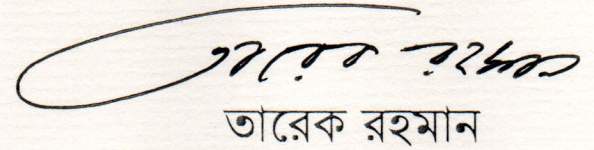 তারেক রহমান
তারেক রহমান